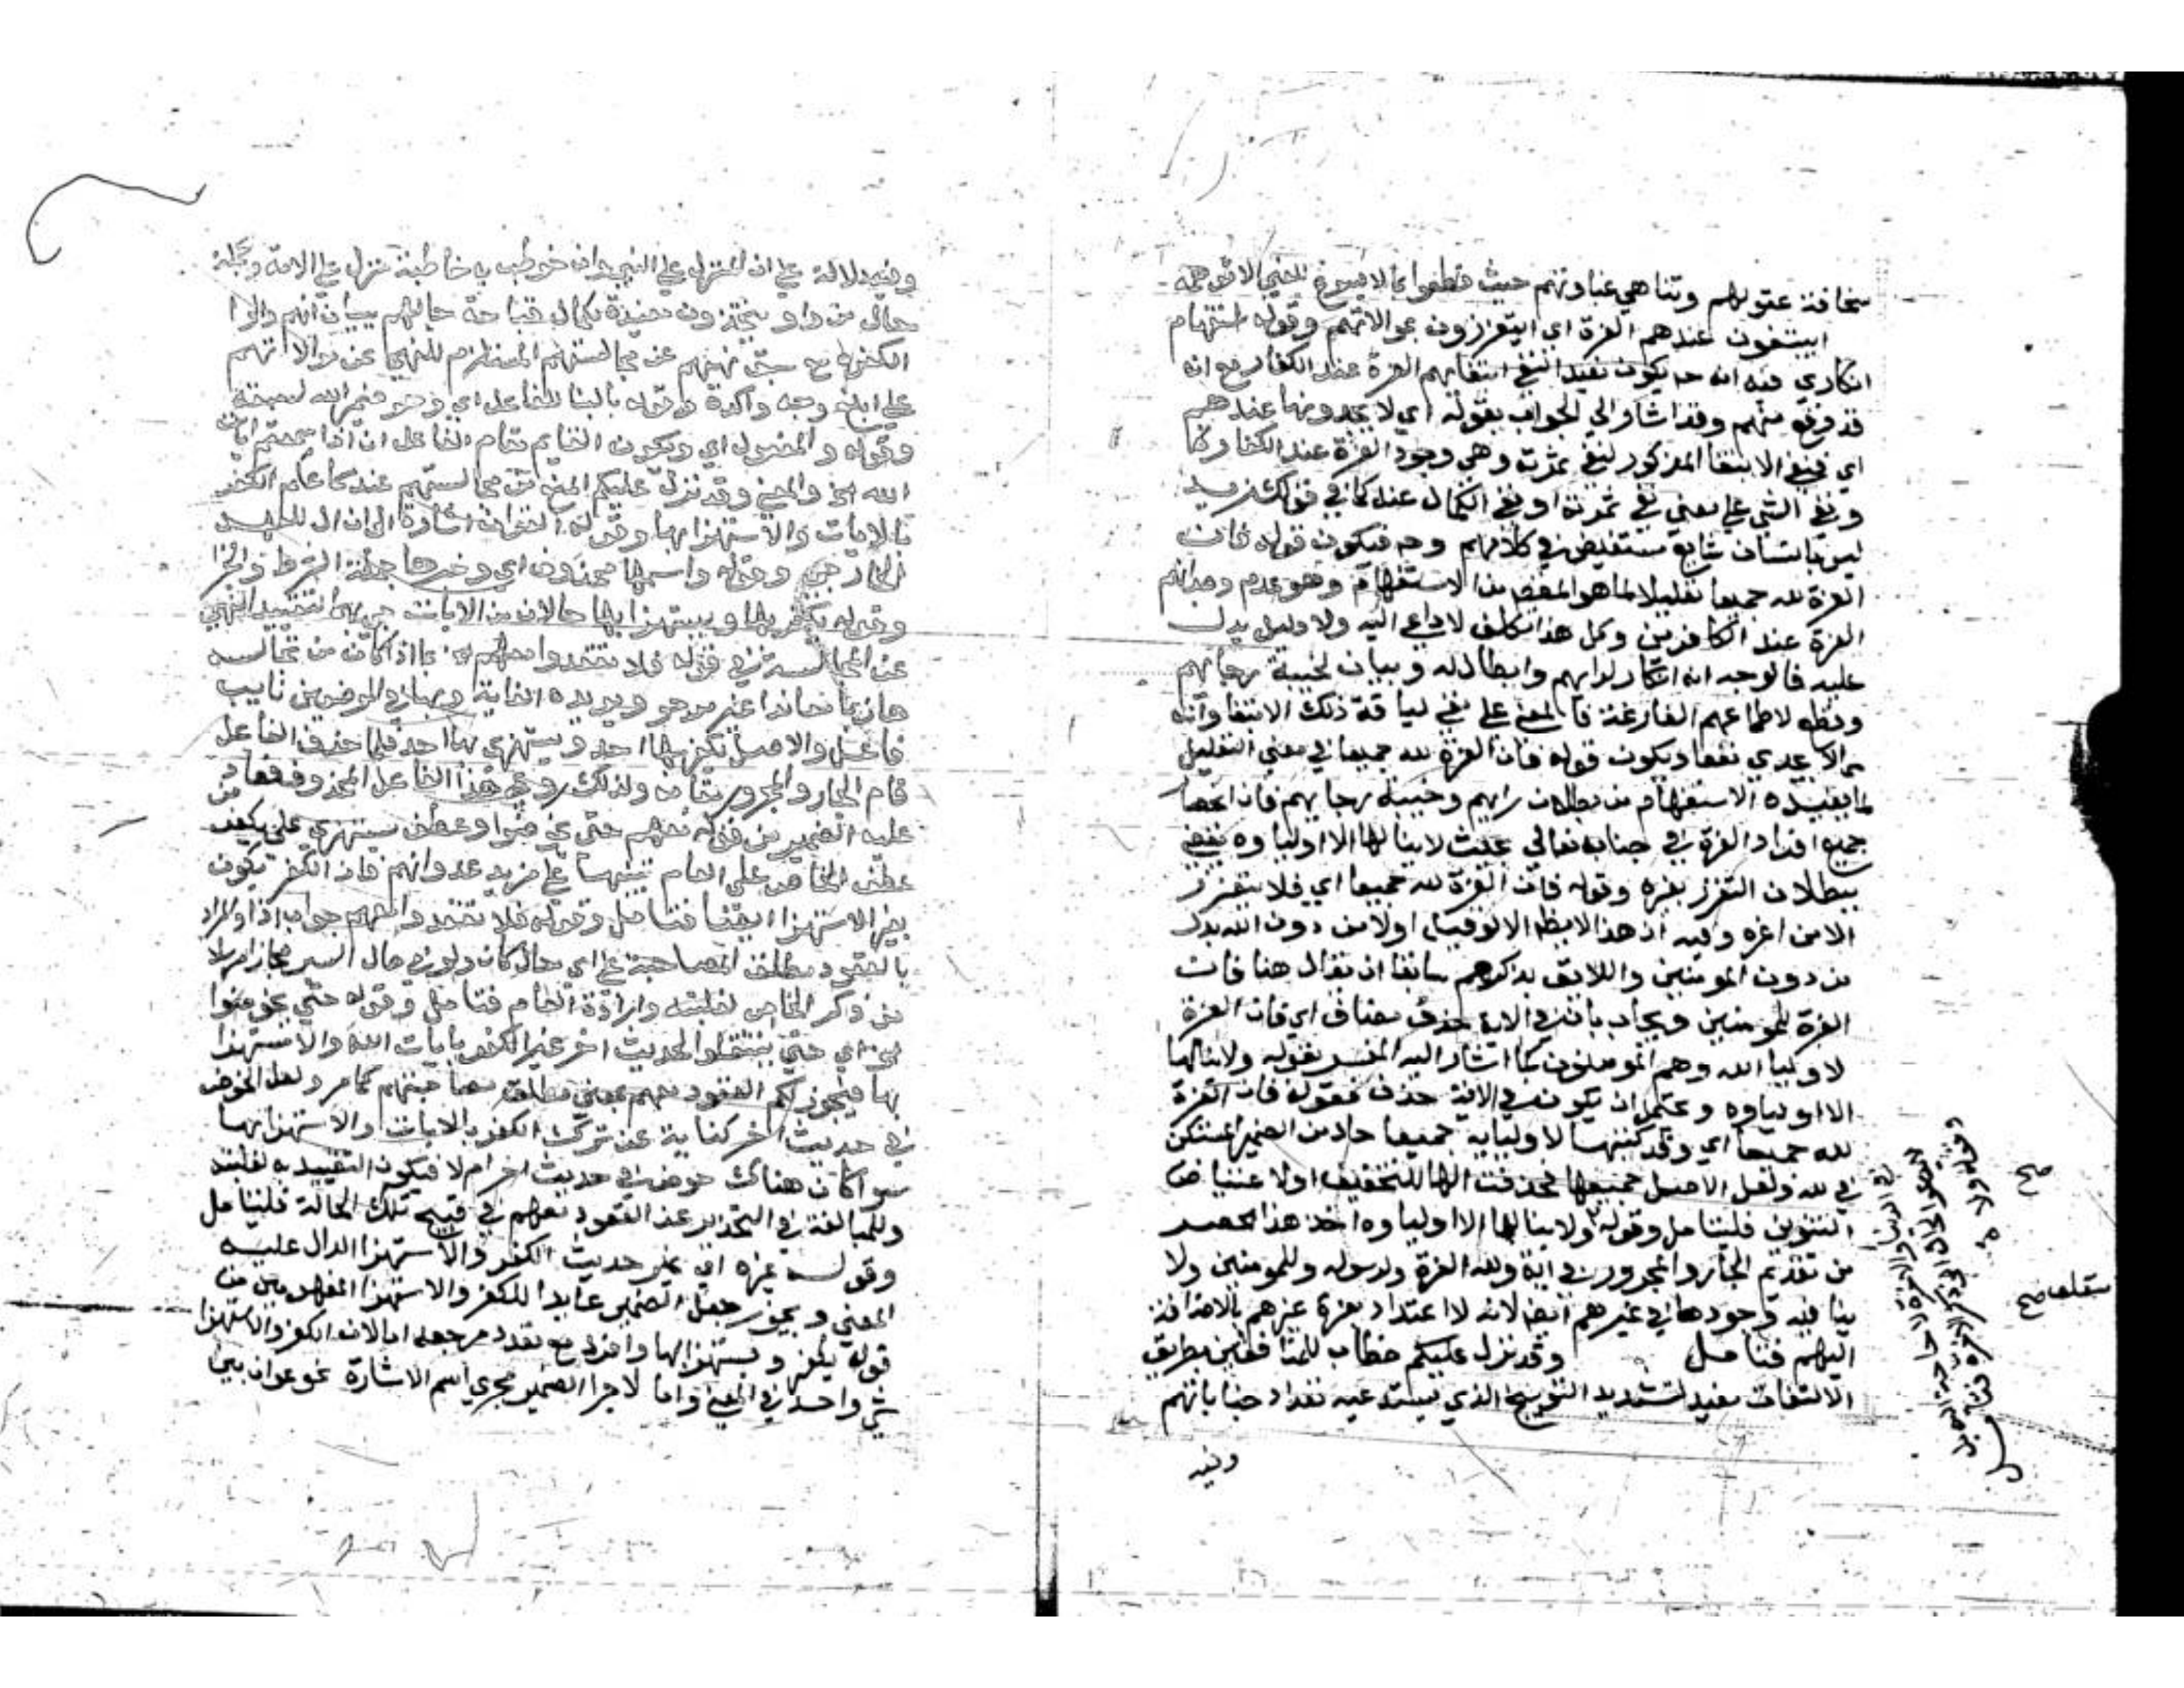 سخافة عقولهم وتناهي غباوتهم حيث قطعوا بما لا يسوغ للغبي الا توهمه
ايبتغون عندهم العزة اي ايتعززون بموالاتهم وقوله استفهام
انكاري فيه انه ح يكون نفيد النفي ابتغايهم العزة عند الكفار مع انه
قد وقع منهم وقد اشار الي الجواب بقوله اي لا يجدونها عندهم
اي فنفي الابتغا المذكور لنفي ثمرته وهي وجود العزة عند الكفار
ونفي الشي علي معني نفي ثمرته او نفي الكمال عنه كما في قولك زيد
ليس بانسان شايع مستفيض في كلامهم وح فيكون قوله فان
العزة لله جميعا تعليلا لما هو المقصد من الاستفهام وهو عدم وجدانهم
العزة عند الكافرين وكل هذا تكلف لا داعي اليه ولا دليل يدل
عليه فالوجه انه انكار لرايهم وابطال له وبيان لخيبة رجايهم
وقطع لاطماعهم الفارغة فالمعني علي نفي لياقة ذلك الابتغا وانه
مما لا يجدي نفعا ويكون قوله فان العزة لله جميعا في معني التعليل
لما يفيده الاستفهام من بطلان رايهم وخيبة رجايهم فان انحصار
جميع افراد العزة في جنابه تعالي بحيث لا ينالها الا اولياوه يقضي
ببطلان التعزز بغيره وقوله فان العزة لله جميعا اي فلا يتعزز
الا من اعزه وفيه ان هذا لا يظهر الا لو قيل اولا من دون الله بدل
من دون المومنين واللايق بذكرهم سابقا ان يقال هنا فان
العزة للمومنين ويجاب بان في الاية حذف مضاف اي فان العزة
لاوليا الله وهم المومنون كما اشار اليه المفسر بقوله ولا ينالها
الا اولياوه ويحتمل ان يكون في الاية حذف فقوله فان العزة
لله جميعا اي وقد كتبها لاوليايه جميعا حال من الضمير المستكن
في لله ولعل الاصل جميعها فحذفت الها للتخفيف اولا عتياض
التنوين فليتامل وقوله ولا ينالها الا اولياوه اخذ هذا الحصر
من تقديم الجار والمجرور في اية ولله العزة ولرسوله وللمومنين ولا
ينا فيه وجودها في غيرهم ايضا لانه لا اعتداد بعزة غيرهم بالاضافة
اليهم فتامل وقد نزل عليكم خطاب للمنافقين بطريق
الالتفات مفيد لتشديد التوبيخ الذي يستدعيه تعداد جناياتهم
وفيه
صح
وفيه دلالة علي ان المنزل علي النبي وان خوطب به خاصة منزل علي الامة وجملة
حال من واو يتخذون مفيدة لكمال قباحة حالهم ببيان انهم والوا
الكفرة مع سبق نهيهم عن مجالستهم المستلزم للنهي عن موالاتهم
علي ابلغ وجه واكده وقوله بالبنا للفاعل اي وهو ضمير الله
وقوله والمفعول اي ويكون القايم مقام الفاعل ان اذا سمعتم ايات
الله الخ والمعني وقد نزل عليكم المنع من مجالستهم عند سماعكم الكفر
بالايات والاستهزا بها وقوله القران اشارة الي ان ال للعهد
الخارجي وقوله واسمها محذوف اي وخبرها جملة الشرط والجزا
وقوله يكفر بها ويستهزا بها حالان من الايات جي بهما لتقييد النهي
عن المجالسة في قوله فلا تقعدوا معهم الخ بما اذا كان من تجالسه
هازيا معاندا غير مرجو ويويده الغاية وبها في الموضعين نايب
فاعل والاصل يكفر بها احد ويستهزي بها احد فلما حذف الفاعل
قام الجار والمجرور مقامه ولذلك روعي هذا الفاعل المحذوف فعاد
عليه الضمير من قوله معهم حتي يخوضوا وعطف يستهزي علي يكفر من
عطف الخاص علي العام تنبيها علي مزيد عدوانهم فان الكفر يكون
بغير الاستهزا ايضا فتامل وقوله فلا تقعدوا معهم جواب اذا والمراد
بالقعود مطلق المصاحبة علي اي حال كان ولو في حال السير مجازا مرسلا
من ذكر الخاص لغلبته وارادة العام فتامل وقوله حتي يخوضوا
الخ اي حتي ينتقلوا لحديث اخر غير الكفر بايات الله والاستهزا
بها فيجوز لكم القعود معهم بمعني مطلق مصاحبتهم كما مر ولعل الخوض
في حديث اخر كناية عن ترك الكفر بالايات والاستهزا بها
سوا كان هناك خوض في حديث اخر ام لا فيكون التقييد به لغلبته
وللمبالغة في التحذير عن القعود معهم في قبيح تلك الحالة فليتامل
وقوله غيره اي غير حديث الكفر والاستهزا الدال عليه
المعني ويجوز جعل الضمير عايدا للكفر والاستهزا المفهومين من
قوله يكفر ويستهزا بها وافرد مع تعدد مرجعه اما لان الكفر والاستهزا
شي واحد في المعني واما لاجرا الضمير مجري اسم الاشارة نحو عوان بين